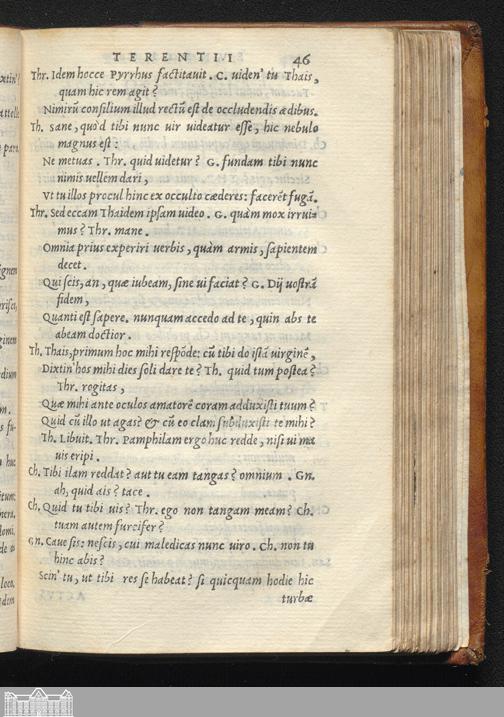 TERENTII 46
Thr. Idem hocce Pyrrhus factitauit. C. uiden' tu Thais,
quam hic rem agit?
Nimirũ consilium illud rectũ est de occludendis ædibus.
Th. Sane, quod tibi nunc uir uideatur esse, hic nebulo
magnus est:
Ne metuas. Thr. quid uidetur? G. fundam tibi nunc
nimis uellem dari,
Vt tu illos procul hinc ex occulto cæderes: facerẽt fugã.
Thr. Sed eccam Thaidem ipsam uideo. G. quàm mox irrui=
mus? Thr. mane.
Omnia prius experiri uerbis, quàm armis, sapientem
decet.
Qui scis, an, quæ iubeam, sine ui faciat? G. Dij uostrã
fidem,
Quanti est sapere. nunquam accedo ad te, quin abs te
abeam doctior.
Th. Thais, primum hoc mihi respõde: cũ tibi do istã uirginẽ,
Dixtin' hos mihi dies soli dare te? Th. quid tum postea?
Thr. rogitas,
Quæ mihi ante oculos amatorẽ coram adduxisti tuum?
Quid cũ illo ut agas? & cũ eo clam subduxisti te mihi?
Th. Libuit. Thr. Pamphilam ergo huc redde, nisi ui ma
uis eripi.
Ch. Tibi ilam reddat? aut tu eam tangas? omnium. Gn.
ah, quid ais? tace.
Ch. Quid tu tibi uis? Thr. ego non tangam meam? Ch.
tuam autem furcifer?
Gn. Caue sis: nescis, cui maledicas nunc uiro. Ch. non tu
hinc abis?
Scin' tu, ut tibi res se habeat? si quicquam hodie hic
turbæ